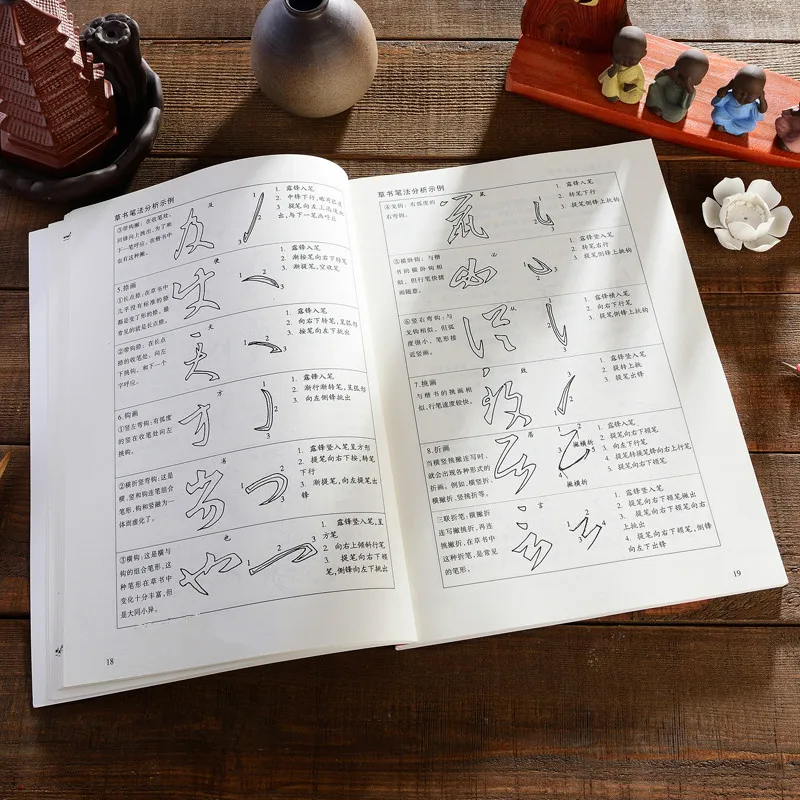 草书笔法分析示例
③带钩撇:在收笔处,
回锋向上挑出,为了和
下一笔呼应,在楷书中
也有这种撇。
及
1
2
3
1. 露锋入笔
2. 中锋下行,略有弧度
3. 提笔向左上迅速挑
出,与下一笔画呼应
5.捺画
①长点捺:在草书中
几乎没有标准的捺
都是变了形的捺,最
常见的就是长点捺。
便
1
2
3
1. 露锋入笔
2. 渐按笔向右下转笔
3. 渐提笔,空收笔
②带钩捺:在长点
捺的收笔处,向左
下挑钩,和下一个
字呼应。
天
1
2
3
1. 露锋入笔
2. 向右下转笔,呈弧形
3. 按笔向左下挑出
6.钩画
①竖左弯钩:有弧度
的竖在收笔处向左
挑钩。
方
1
2
3
1. 露锋入笔
2. 渐行渐转笔,呈弧形
3. 向左侧锋挑出
②横折竖弯钩:这是
横、竖和钩连笔组合
笔形,钩和竖融为一
体而虚化了。
书
1
2
3
1. 露锋竖入笔呈方形
2. 提笔向右下按,转笔
下行
3. 渐提笔,向左提笔出
锋
③横钩:这是横与
钩的组合笔形,这
种笔形在草书中
变化十分丰富,但
是大同小异。
也
1
2
3
1. 露锋竖入笔,呈
方笔
2. 向右上倾斜行笔
3. 提笔向右下顿
笔,侧锋向左下挑出
18
草书笔法分析示例
④戈钩:有弧度的
右弯钩。
1
2
3
1. 露锋入笔
2. 转笔下行
3. 提笔侧锋上挑钩
⑤横卧钩:与楷
书的横卧钩相
似,但行笔快捷
而随意。
必
1
2
3
1. 露锋竖入笔
2. 转笔右行
3. 提笔侧锋上挑钩
⑥竖右弯钩:与
戈钩相似,但弧
度很小,笔形接
近竖画。
从
1
2
3
1. 露锋横入笔
2. 向右下行笔
3. 提笔侧锋上挑钩
7.挑画
与楷书的挑画相
似,行笔速度较快。
1
2
3
1. 露锋竖入笔
2. 提转上挑
3. 提笔出锋
8.折画
当横竖挑撇连写时,
就会出现各种形式的
折画。例如,横竖折、
横撇折、竖挑折等。
1
2
3
4
5
撇横折
撇横折
1. 露锋入笔
2. 提笔向右下顿笔
3. 向左下行笔
4. 提笔转换笔锋向右上行笔
5. 提笔向右下顿笔
三联折笔:横撇折
连写撇挑折,再连
挑撇折,在草书中
这种折笔,是常见
的笔形。
言
1
2
3
4
1. 露锋竖入笔
2. 提笔向右下顿笔撇出
3. 提笔向右下顿笔向右
上挑出
4. 提笔向右下顿笔,侧锋
向左下出锋
19